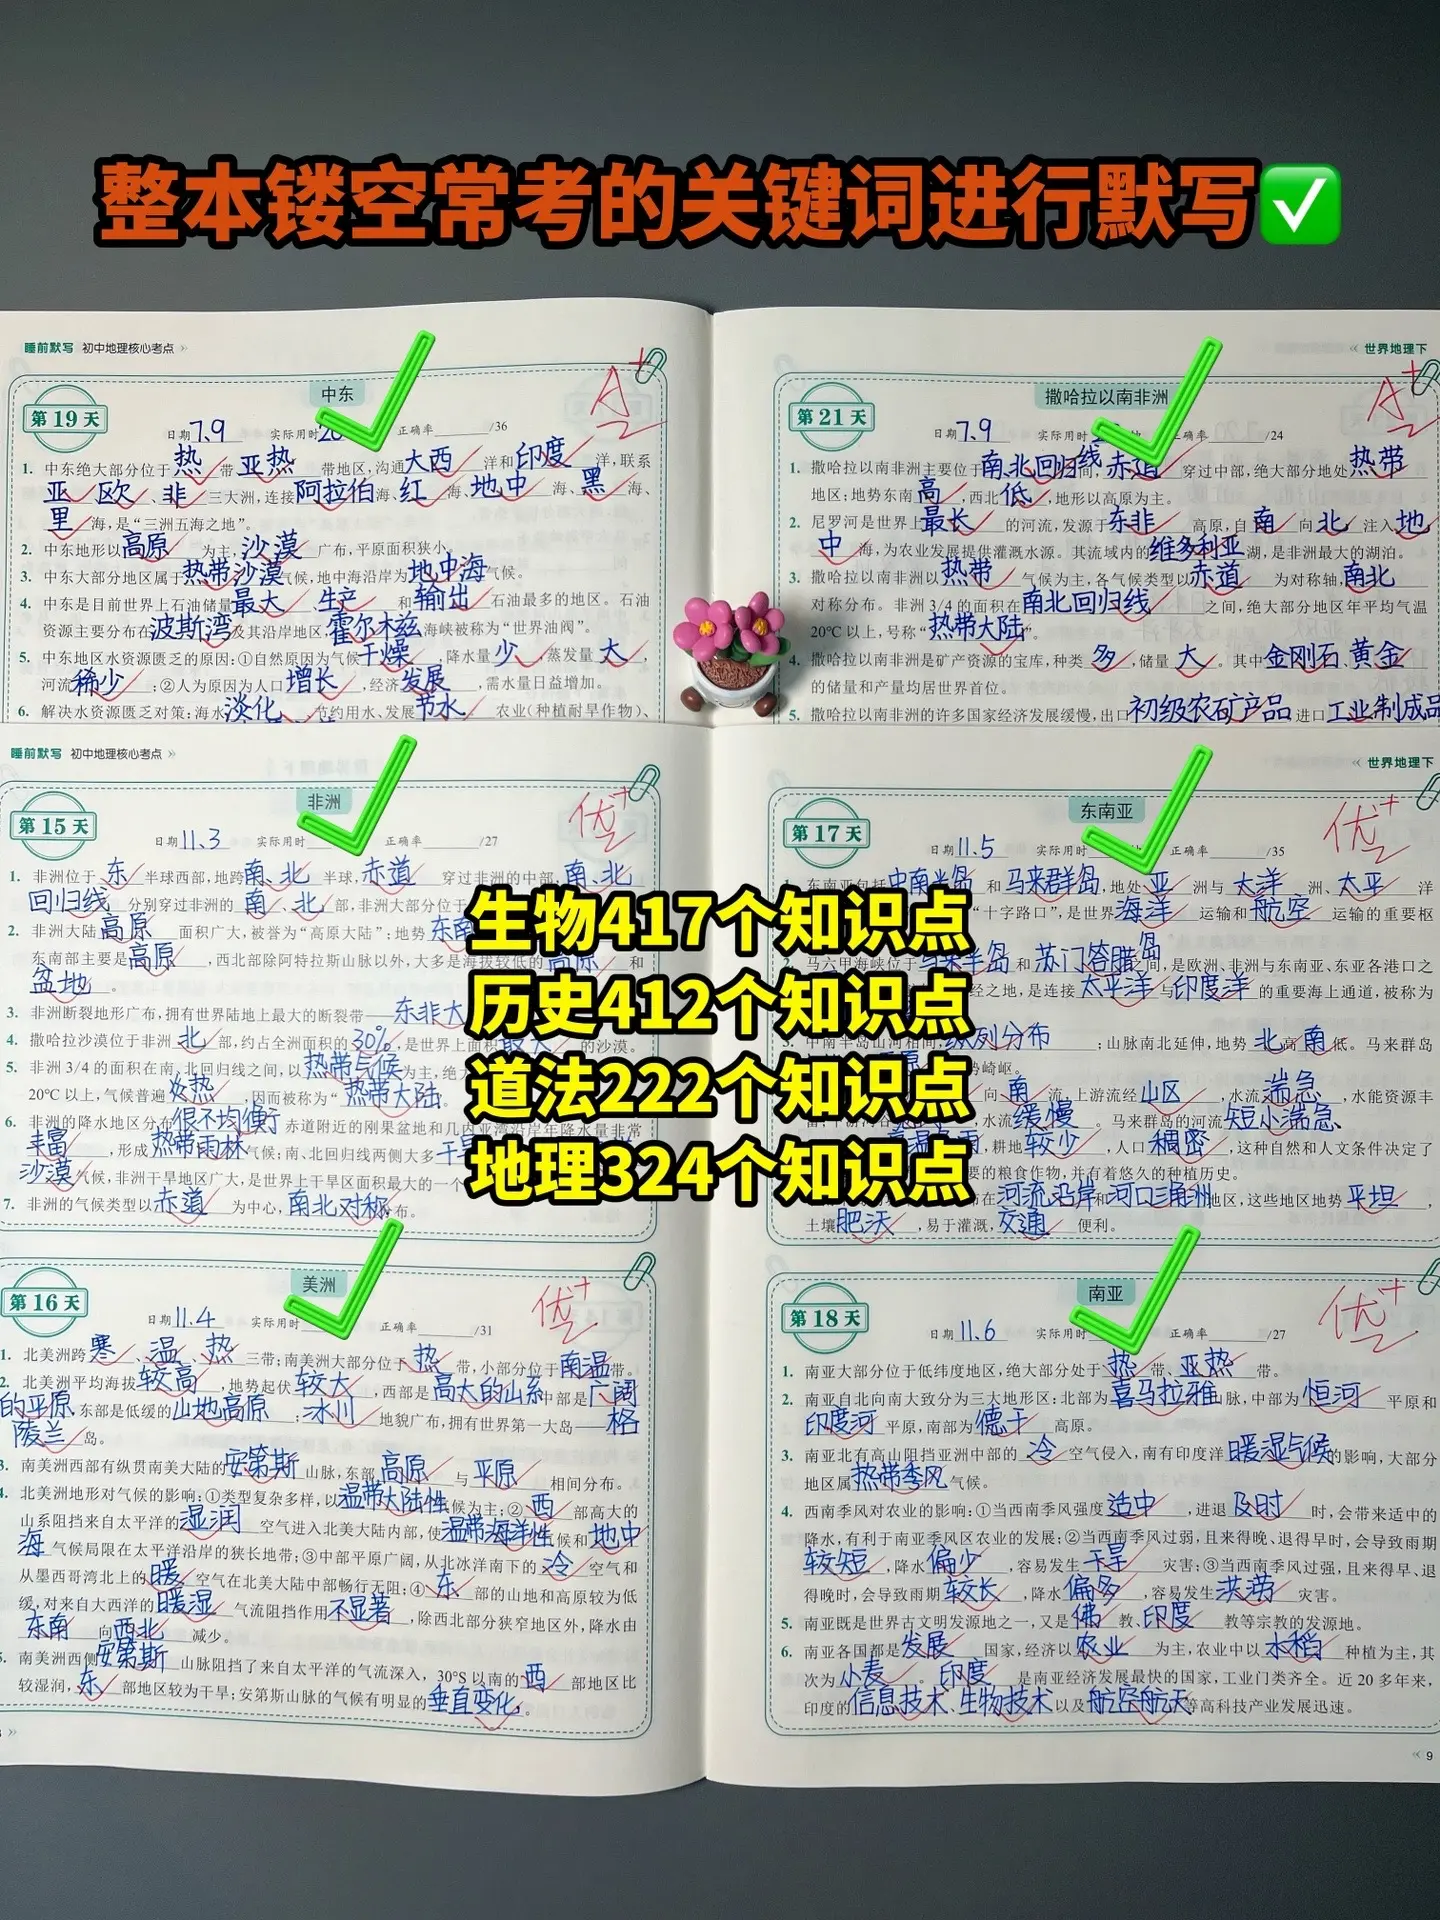 整本镂空常考的关键词进行默写✅
睡前默写 初中地理核心考点
中东
第19天
日期7.9 实际用时 正确率 /36
A+
1. 中东绝大部分位于热带亚热带地区,沟通大西洋和印度洋,联系
亚、欧、非三大洲,连接阿拉伯海、红海、地中海、黑海、
里海,是“三洲五海之地”。
2. 中东地形以高原为主,沙漠广布,平原面积狭小。
3. 中东大部分地区属于热带沙漠气候,地中海沿岸为地中海气候。
4. 中东是目前世界上石油储量最大、生产和输出石油最多的地区。石油
资源主要分布在波斯湾及其沿岸地区,霍尔木兹海峡被称为“世界油阀”。
5. 中东地区水资源匮乏的原因:①自然原因为气候干燥,降水量少,蒸发量大,
河流稀少;②人为原因为人口增长,经济发展,需水量日益增加。
6. 解决水资源匮乏对策:海水淡化、节约用水、发展节水农业(种植耐旱作物)、
世界地理下
撒哈拉以南非洲
第21天
日期7.9 正确率 /24
A+
1. 撒哈拉以南非洲主要位于南北回归线之间,赤道穿过中部,绝大部分地处热带
地区;地势东南高,西北低,地形以高原为主。
2. 尼罗河是世界上最长的河流,发源于东非高原,自南向北注入地
中海,为农业发展提供灌溉水源。其流域内的维多利亚湖,是非洲最大的湖泊。
3. 撒哈拉以南非洲以热带气候为主,各气候类型以赤道为对称轴,南北
对称分布。非洲3/4的面积在南北回归线之间,绝大部分地区年平均气温
20℃以上,号称“热带大陆”。
4. 撒哈拉以南非洲是矿产资源的宝库,种类多,储量大。其中金刚石、黄金
的储量和产量均居世界首位。
5. 撒哈拉以南非洲的许多国家经济发展缓慢,出口初级农矿产品进口工业制成品
睡前默写 初中地理核心考点
非洲
第15天
日期11.3 实际用时 正确率 /27
优+
1. 非洲位于东半球西部,地跨南、北半球,赤道穿过非洲的中部,南、北
回归线分别穿过非洲的南、北部,非洲大部分位于
2. 非洲大陆高原面积广大,被誉为“高原大陆”;地势东南
东南部主要是高原,西北部除阿特拉斯山脉以外,大多是海拔较低的高原和
盆地。
3. 非洲断裂地形广布,拥有世界陆地上最大的断裂带——东非大
4. 撒哈拉沙漠位于非洲北部,约占全洲面积的30%,是世界上面积最大的沙漠。
5. 非洲3/4的面积在南、北回归线之间,以热带气候为主,绝大
20℃以上,气候普遍炎热,因而被称为“热带大陆”
6. 非洲的降水地区分布很不均衡,赤道附近的刚果盆地和几内亚湾沿岸年降水量非常
丰富,形成热带雨林气候;南、北回归线两侧大多干旱
沙漠气候,非洲干旱地区广大,是世界上干旱区面积最大的一个
7. 非洲的气候类型以赤道为中心,南北对称分布。
世界地理下
东南亚
第17天
日期11.5 实际用时 正确率 /35
优+
1. 东南亚包括中南半岛和马来群岛,地处亚洲与大洋洲、太平洋
“十字路口”,是世界海洋运输和航空运输的重要枢
马六甲海峡位于马来半岛和苏门答腊岛之间,是欧洲、非洲与东南亚、东亚各港口之
经之地,是连接太平洋与印度洋的重要海上通道,被称为
3. 中南半岛山河相间,纵列分布;山脉南北延伸,地势北高南低。马来群岛
势崎岖。
向南流,上游流经山区,水流湍急,水能资源丰
水流缓慢。马来群岛的河流短小湍急。
耕地较少,人口稠密,这种自然和人文条件决定了
要的粮食作物,并有着悠久的种植历史。
在河流沿岸和河口三角洲地区,这些地区地势平坦,
土壤肥沃,易于灌溉,交通便利。
生物417个知识点
历史412个知识点
道法222个知识点
地理324个知识点
美洲
第16天
日期11.4 实际用时 正确率 /31
优+
1. 北美洲跨寒、温、热三带;南美洲大部分位于热带,小部分位于南温带。
2. 北美洲平均海拔较高,地势起伏较大,西部是高大的山系中部是广阔
的平原,东部是低缓的山地高原;冰川地貌广布,拥有世界第一大岛——格
陵兰岛。
3. 南美洲西部有纵贯南美大陆的安第斯山脉,东部高原与平原相间分布。
4. 北美洲地形对气候的影响:①类型复杂多样,以温带大陆性气候为主;②西部高大的
山系阻挡来自太平洋的湿润空气进入北美大陆内部,使温带海洋性气候和地中
海气候局限在太平洋沿岸的狭长地带;③中部平原广阔,从北冰洋南下的冷空气和
从墨西哥湾北上的暖空气在北美大陆中部畅行无阻;④东部的山地和高原较为低
缓,对来自大西洋的暖湿气流阻挡作用不显著,除西北部分狭窄地区外,降水由
东南向西北减少。
5. 南美洲西侧安第斯山脉阻挡了来自太平洋的气流深入,30°S以南的西部地区比
较湿润,东部地区较为干旱;安第斯山脉的气候有明显的垂直变化。
南亚
第18天
日期11.6 实际用时 正确率 /27
优+
1. 南亚大部分位于低纬度地区,绝大部分处于热带、亚热带。
2. 南亚自北向南大致分为三大地形区:北部为喜马拉雅山脉,中部为恒河平原和
印度河平原,南部为德干高原。
3. 南亚北有高山阻挡亚洲中部的冷空气侵入,南有印度洋暖湿气候的影响,大部分
地区属热带季风气候。
4. 西南季风对农业的影响:①当西南季风强度适中,进退及时时,会带来适中的
降水,有利于南亚季风区农业的发展;②当西南季风过弱,且来得晚、退得早时,会导致雨期
较短,降水偏少,容易发生干旱灾害;③当西南季风过强,且来得早、退
得晚时,会导致雨期较长,降水偏多,容易发生洪涝灾害。
5. 南亚既是世界古文明发源地之一,又是佛教、印度教等宗教的发源地。
6. 南亚各国都是发展国家,经济以农业为主,农业中以水稻种植为主,其
次为小麦。印度是南亚经济发展最快的国家,工业门类齐全。近20多年来,
印度的信息技术、生物技术以及航空航天等高科技产业发展迅速。
9